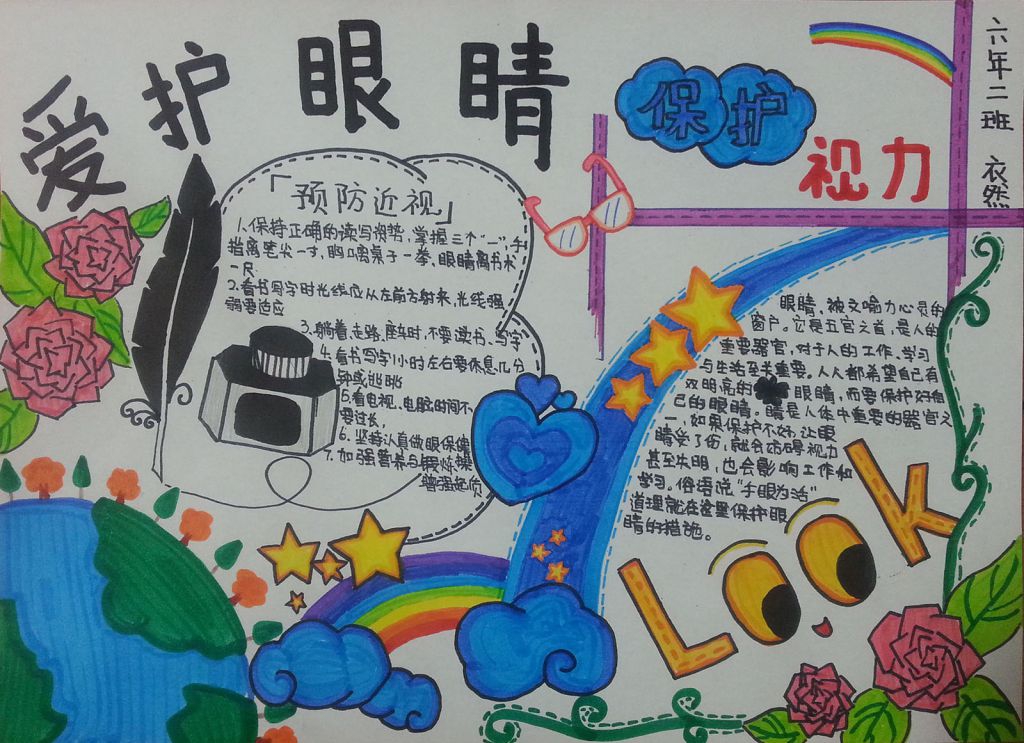 爱护眼睛
保护
视力
六年二班 衣然
「预防近视」
1.保持正确的读写资势、掌握三个“一”,手
指离笔尖一寸,胸离桌子一拳、眼睛离书本
一尺
2.看书写字时光线应从左前方射来,光线强
弱要适应
3.躺着、走路、座车时,不要读书、写字
4.看书写字1小时左右要休息几分
钟或远眺
5.看电视、电脑时间不
要过长,
6.坚持认真做眼保健
7.加强营养与锻炼操
增强起质
眼睛,被文喻为心灵的
窗户。它是五官之首,是人的
重要器官,对于人的工作、学习
与生活至关重要。人人都希望自己有
双明亮的 眼睛,而要保护好自
己的眼睛。睛是人体中重要的器官之
一,如果保护不好,让眼
睛受了伤,就会妨碍视力
甚至失明,也会影响工作和
学习。俗语说“手眼为活”
道理就在这里保护眼
睛的措施。
Look